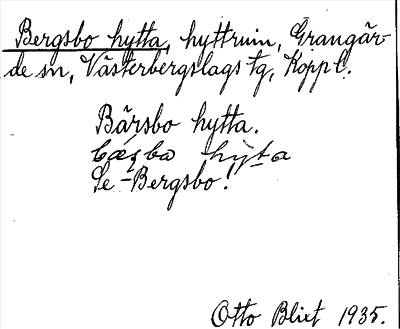 Bergsbo hytta, hyttruin, Grangär-
de sn, Västerbergslags tg, Kopp l.
Bärsbo hytta.
hyta
Se -Bergsbo!
Otto Blixt 1935.